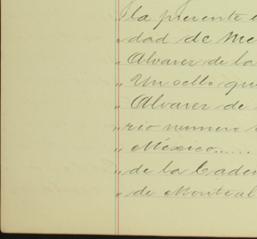 la presente
" dad de Me
" Alvarez de la
" Un sello que
" Alvarez de
" rio numero
" México.....
" de la Cade
" de Montreal